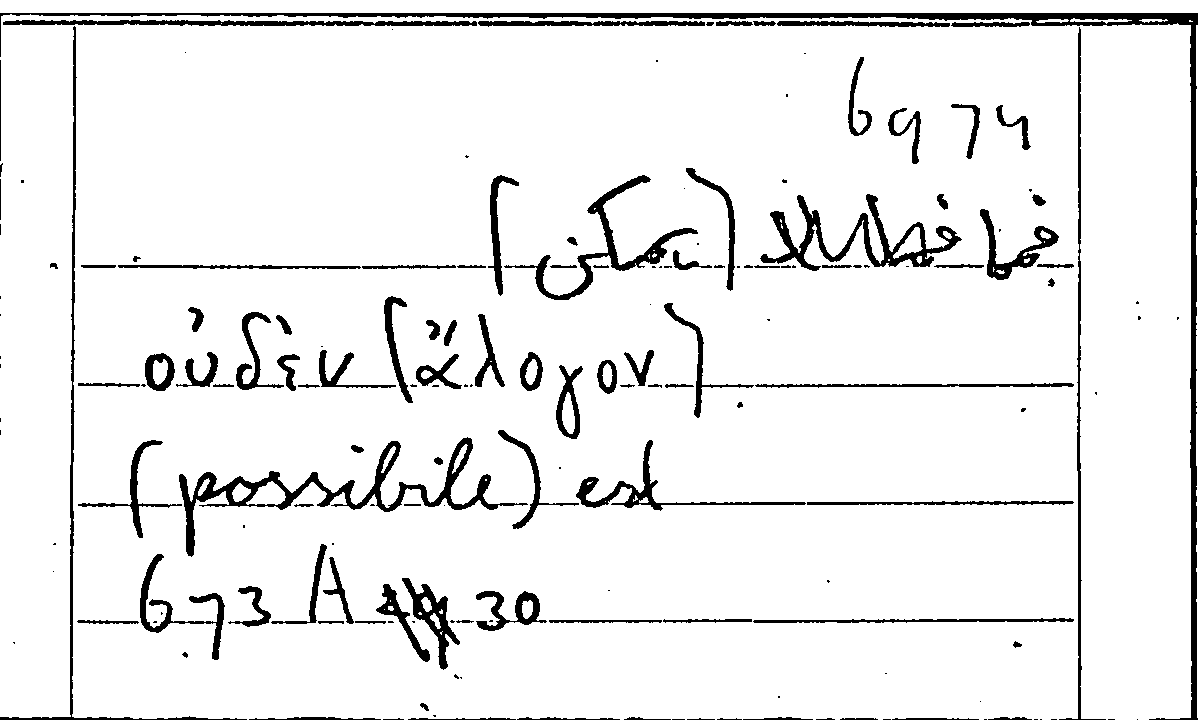 6974
(ممكن)
οὐδὲν (ἄλογον)
(possibile) est
673 A 30